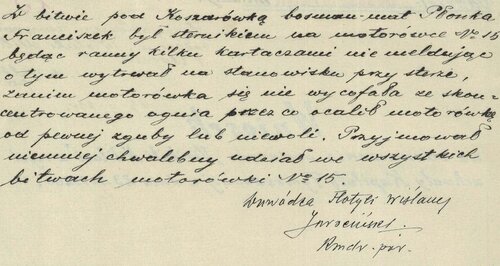 W bitwie pod Koszarówką bosman-mat Płonka
Franciszek był sternikiem na motorówce No 15
będąc ranny kilku kartaczami nie meldując
o tym wytrwał na stanowisku przy sterze,
zanim motorówka się nie wycofała ze skon-
centrowanego ognia przez co ocalił motorówkę
od pewnej zguby lub niewoli. Przyjmował
niemniej chwalebny udział we wszystkich
bitwach motorówki No 15.
Dowódca Flotyli Wiślanej
Jarociński
Kmdr. por.